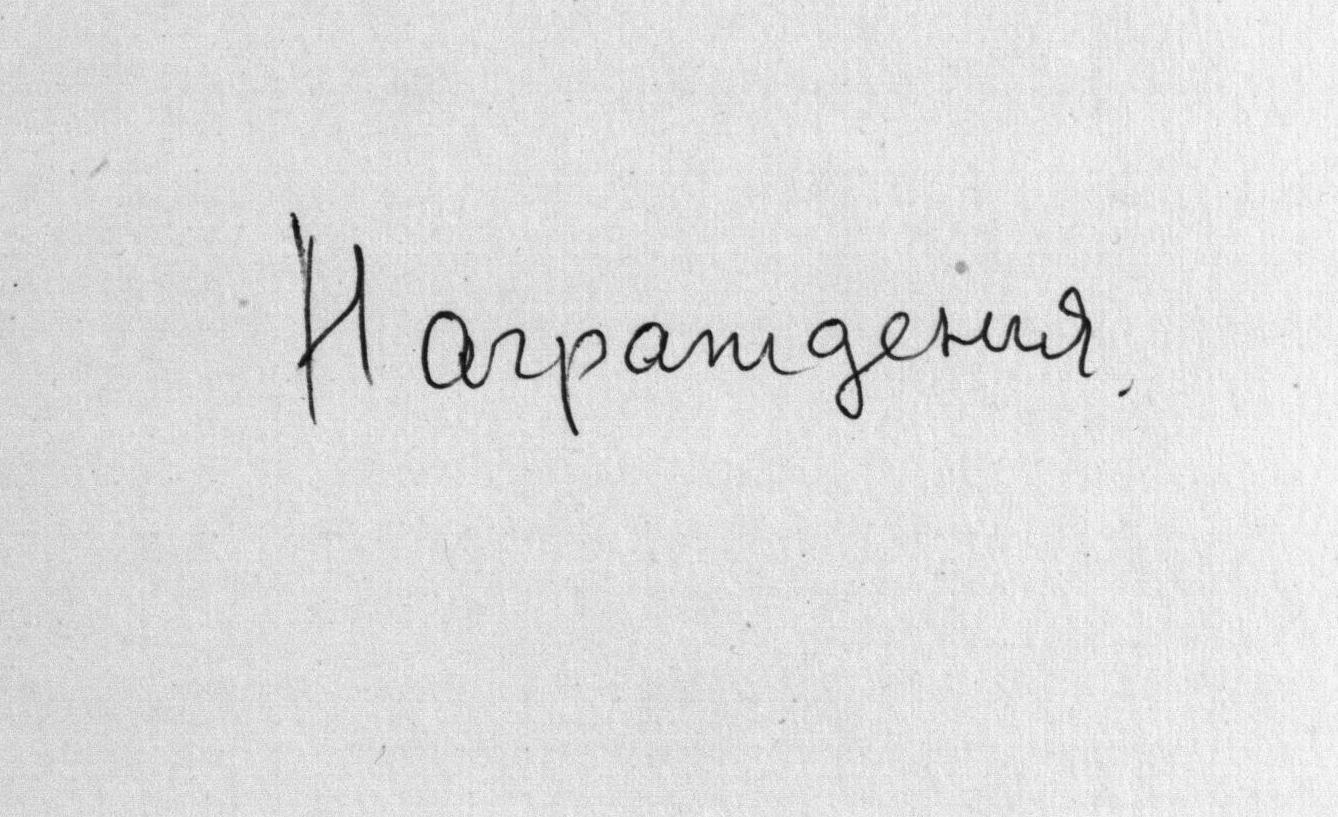 Награждения.